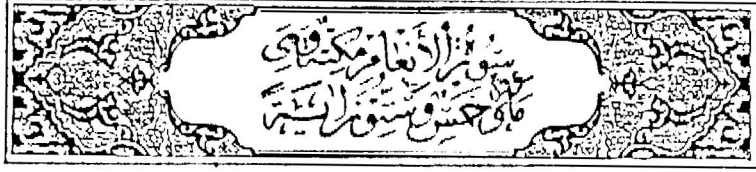 سورة الأنعام مكية وهي
مائة وخمس وستون آية